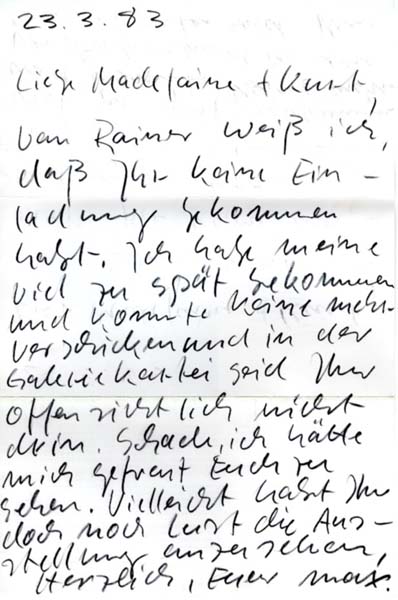 23.3.83
Liebe Madelaine + Kurt,
von Rainer weiß ich,
daß Ihr keine Ein-
ladung bekommen
habt. Ich habe meine
viel zu spät bekommen
und konnte keine mehr
verschicken und in der
Galeriekartei seid Ihr
offensichtlich nicht
drin. Schade, ich hätte
mich gefreut Euch zu
sehen. Vielleicht habt Ihr
doch noch Lust die Aus-
stellung anzusehen,
Herzlich, Euer Max.